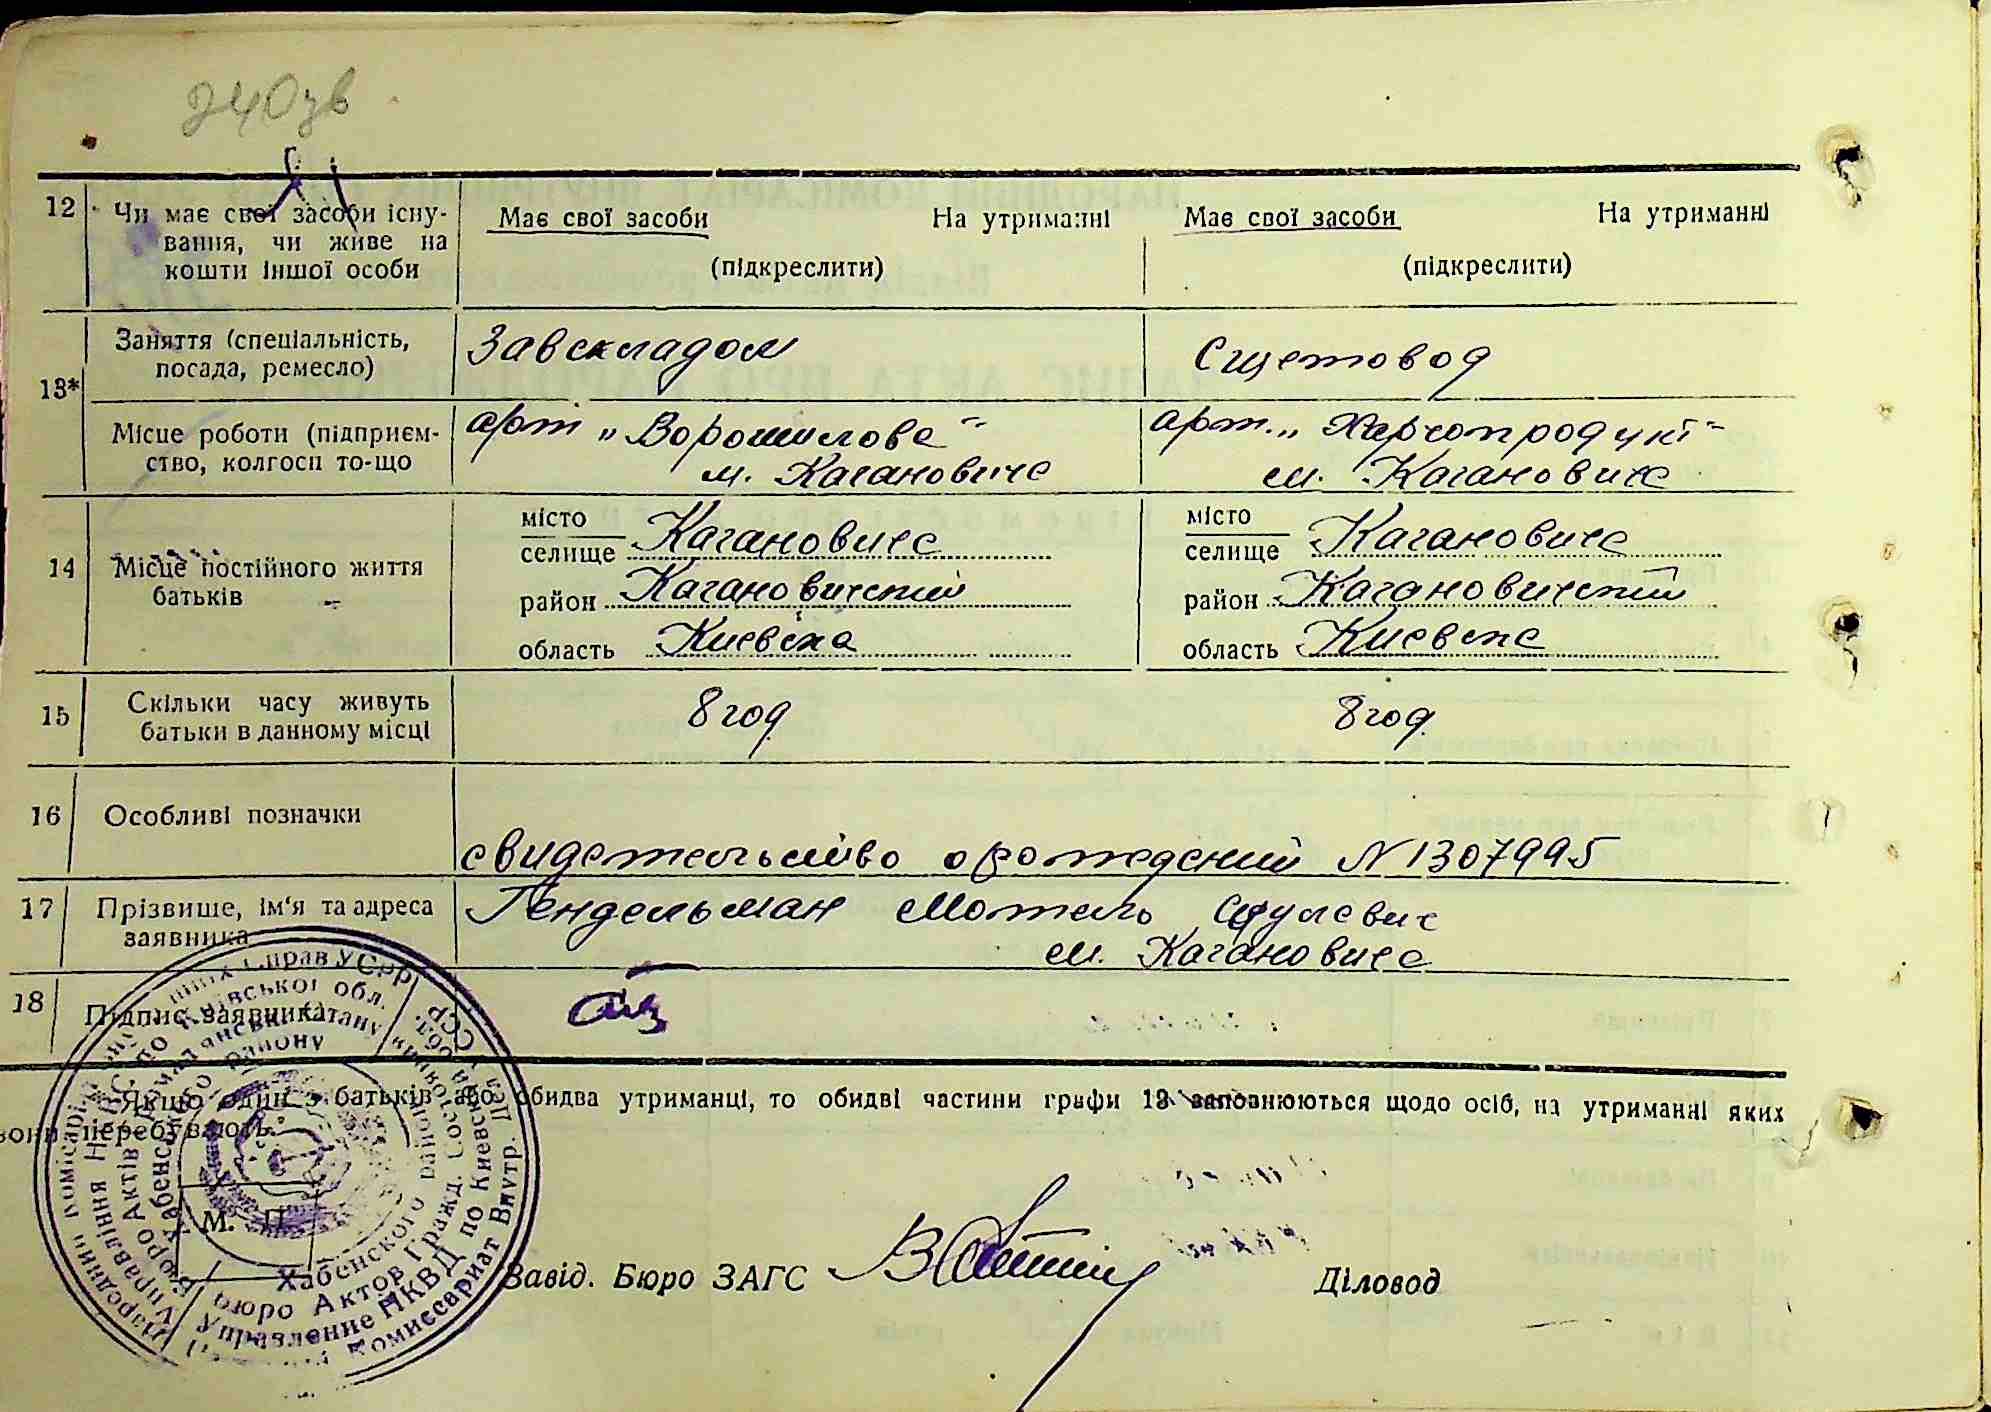 240зв
12 Чи має свої засоби існу-
вання, чи живе на
кошти іншої особи
Має свої засоби На утриманні
(підкреслити)
Має свої засоби На утриманні
(підкреслити)
13* Заняття (спеціальність,
посада, ремесло)
Завскладом
Сщетовод
Місце роботи (підприєм-
ство, колгосп то-що
арт „Ворошилова"
м. Кагановиче
арт. „Харчопродукт"
м. Кагановиче
14 Місце постійного життя
батьків
місто
селище Кагановиче
район Кагановический
область Киевска
місто
селище Кагановиче
район Кагановический
область Киевска
15 Скільки часу живуть
батьки в данному місці
8 год.
8 год.
16 Особливі позначки
свидетельство о рождений N1307995
17 Прізвише, ім'я та адреса
заявника
Гендельман Мотель
м. Кагановиче
18 Підпис заявника
Якщо один з батьків або обидва утриманці, то обидві частини графи 13 заповнюються щодо осіб, на утриманні яких
вони перебувають.
М. П.
Завід. Бюро ЗАГС
Діловод
Хабенского района
Бюро Актов Гражд. Состояния
Управление НКВД по Киевской обл.
Комиссариат Внутр. Дел УССР